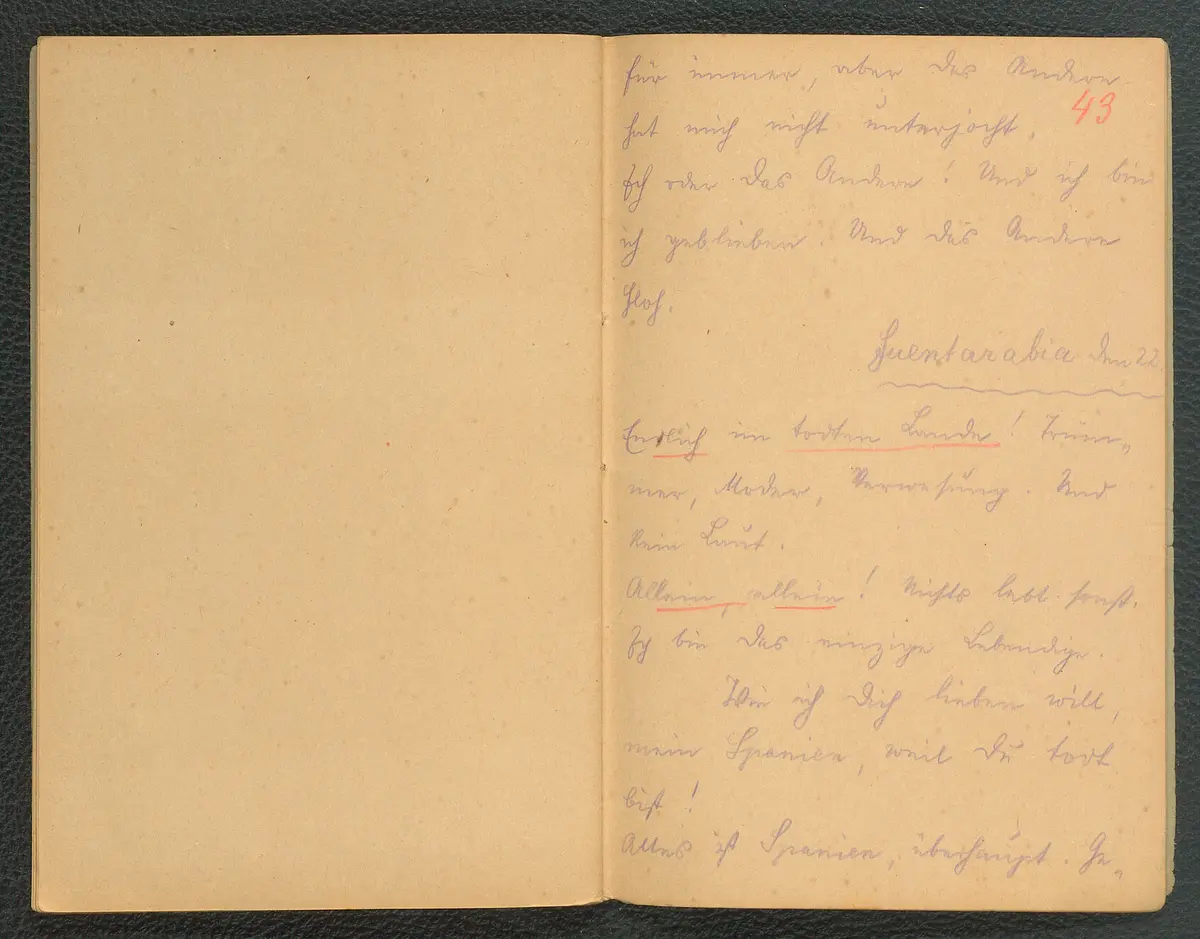 für immer, aber das Andere
43
hat mich nicht unterjocht.
Ich oder das Andere! Und ich bin
ich geblieben. Und das Andere
floh.
Fuentarabia den 22.
Endlich im todten Lande! Trüm„
mer, Moder, Verwesung. Und
kein Laut.
Allein, allein! Nichts lebt sonst.
Ich bin das einzige Lebendige.
Wie ich dich lieben will,
mein Spanien, weil du todt
bist!
Alles ist Spanien, überhaupt. Ge„